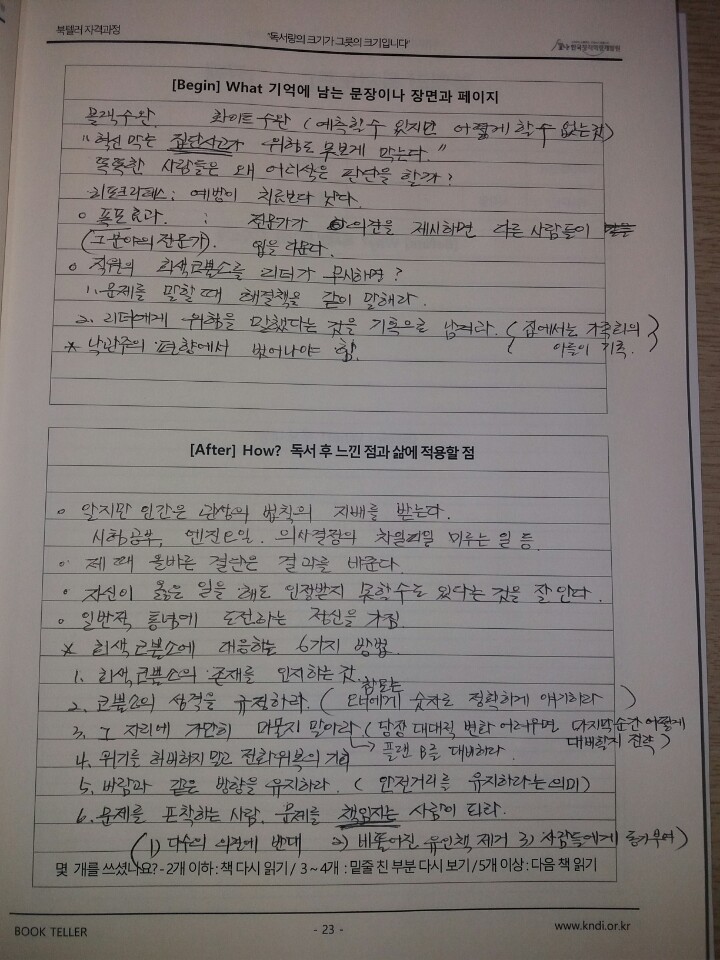 북텔러 자격과정
"독서량의 크기가 그릇의 크기입니다"
[Begin] What 기억에 남는 문장이나 장면과 페이지
블랙수완. 화이트수완 (예측할수 있지만 어떻게 할수 없는것)
"혁신 막는 집단사고가 위험도 무보게 막는다."
똑똑한 사람들은 왜 어리석은 판단을 할까?
히포크라테스: 예방이 치료보다 낫다.
o 폭포효과. : 전문가가 의견을 제시하면 다른 사람들이
(그분야의 전문가). 입을 다문다.
o 직원의 회색코뿔소를 리더가 무시하면?
1. 문제를 말할때 해결책을 같이 말해라.
2. 리더에게 위험을 말했다는 것을 기록으로 남겨라. (집에서는 가족회의
아들이 기록.)
* 낙관주의 편향에서 벗어나야 함.
[After] How? 독서 후 느낀 점과 삶에 적용할 점
o 알지만 인간은 관성의 법칙의 지배를 받는다.
시험공부, 엔진오일. 의사결정의 차일피일 미루는 일 등
o 제때 올바른 결단은 결과를 바꾼다.
o 자신이 옳은 일을 해도 인정받지 못할수도 있다는 것을 잘 안다.
o 일반적 통념에 도전하는 정신을 가짐
* 회색코뿔소에 대응하는 6가지 방법.
1. 회색코뿔소의 존재를 인지하는것.
2. 코뿔소의 성격을 규정하라. (참모는 리더에게 숫자로 정확하게 얘기하라)
3. 그 자리에 가만히 머물지 말아라 (당장 대대적 변화 어려우면 마지막순간 어떻게
대비할지 전략)
→ 플랜 B를 대비하라.
4. 위기를 허비하지 말고 전화위복의 기회
5. 바람과 같은 방향을 유지하라. (안전거리를 유지하라는 의미)
6. 문제를 포착하는 사람, 문제를 책임지는 사람이 되라.
(1) 다수의 의견에 반대 2) 비뚤어진 유인책 제거 3) 사람들에게 동기부여)
몇 개를 쓰셨나요?-2개 이하:책 다시 읽기/ 3~4개 :밑줄 친 부분 다시 보기/5개 이상:다음 책 읽기
BOOK TELLER
- 23 -
www.kndi.or.kr